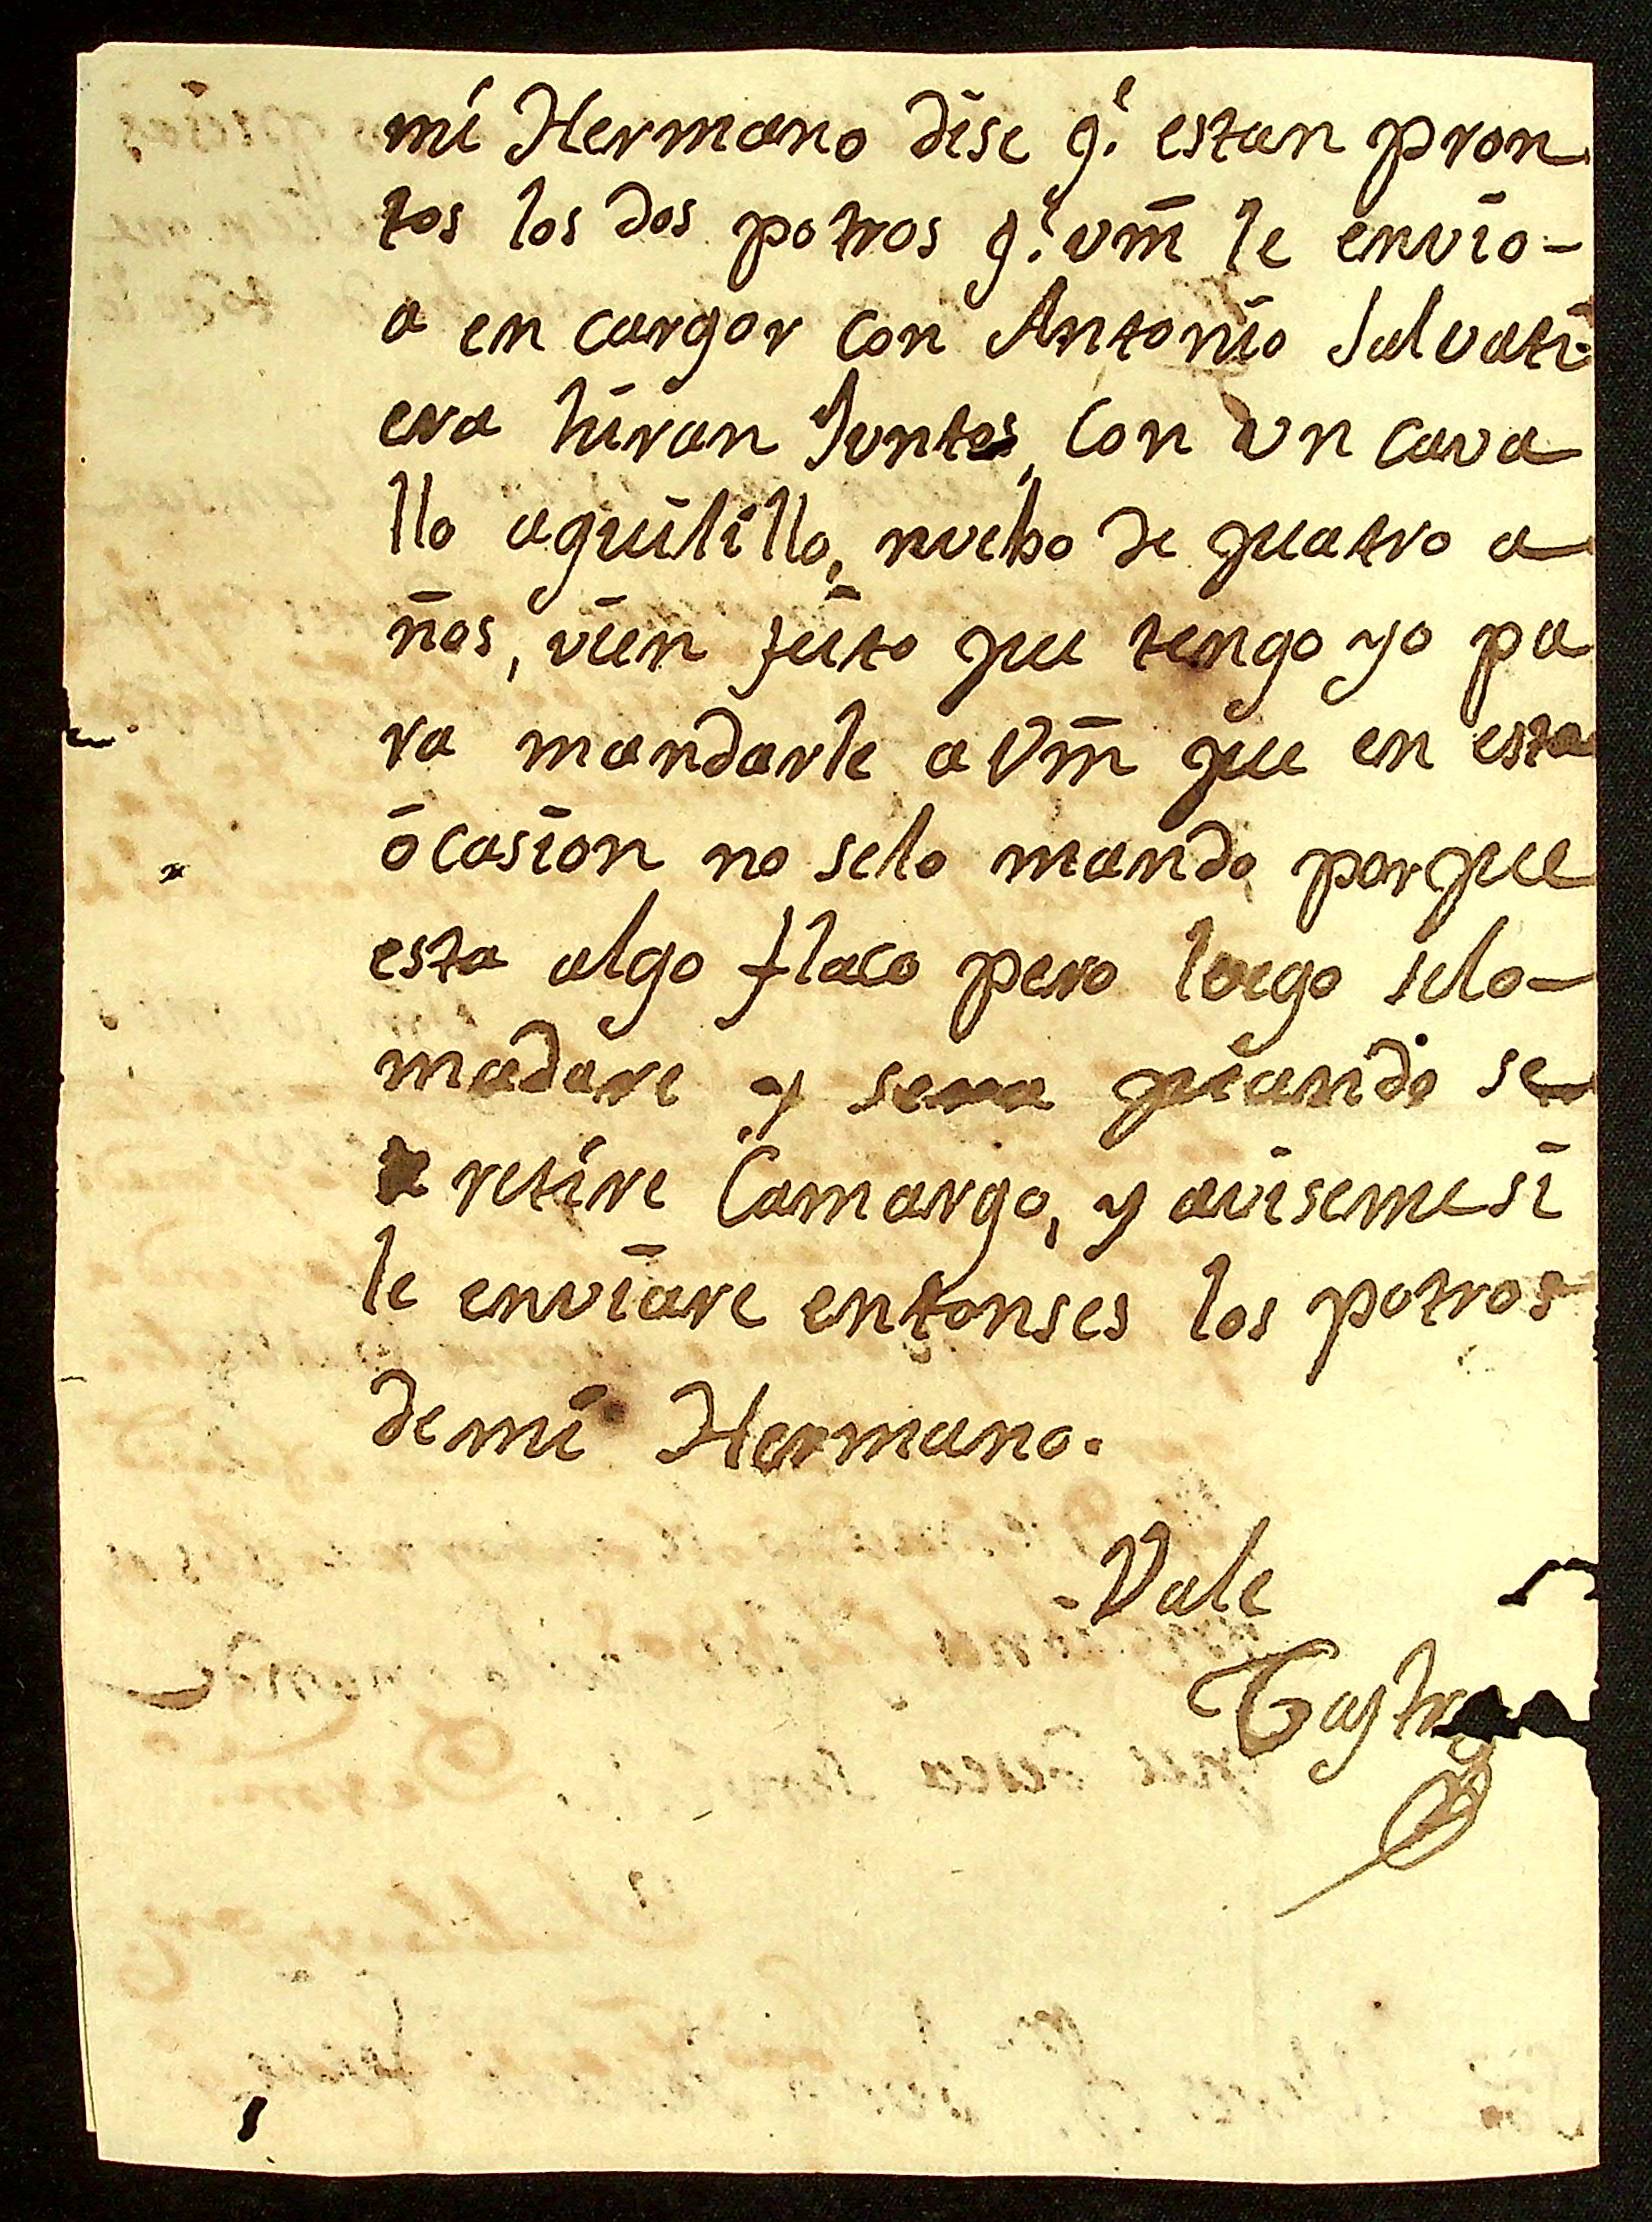 mi Hermano dise q.e estan pron
tos los dos potros q.e vm̄ le envio-
a en cargar con Antonio Salvati
era hiran Juntos, con un cava
llo aguilillo, nuebo de quatro a
ños, vien feito que tengo yo pa
ra mandarle a Vm̄ que en esta
ocasion no selo mando, porque
esta algo flaco pero luego selo-
madare y sera quando se
retire Camargo, y avisemesi
le enviare entonses los potros
demi Hermano.
Vale
Castro